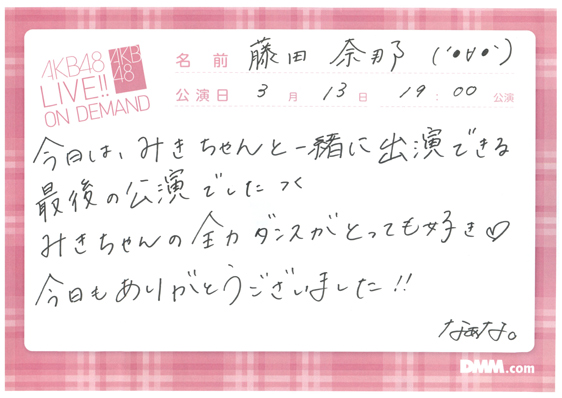 AKB48
LIVE!!
ON DEMAND
AKB
48
名前 藤田 奈那 (´•∀•`)
公演日 3月 13日 19:00 公演
今日は、みきちゃんと一緒に出演できる
最後の公演でしたっ
みきちゃんの全力ダンスがとっても好き♡
今日もありがとうございました!!
なぁな。
DMM.com